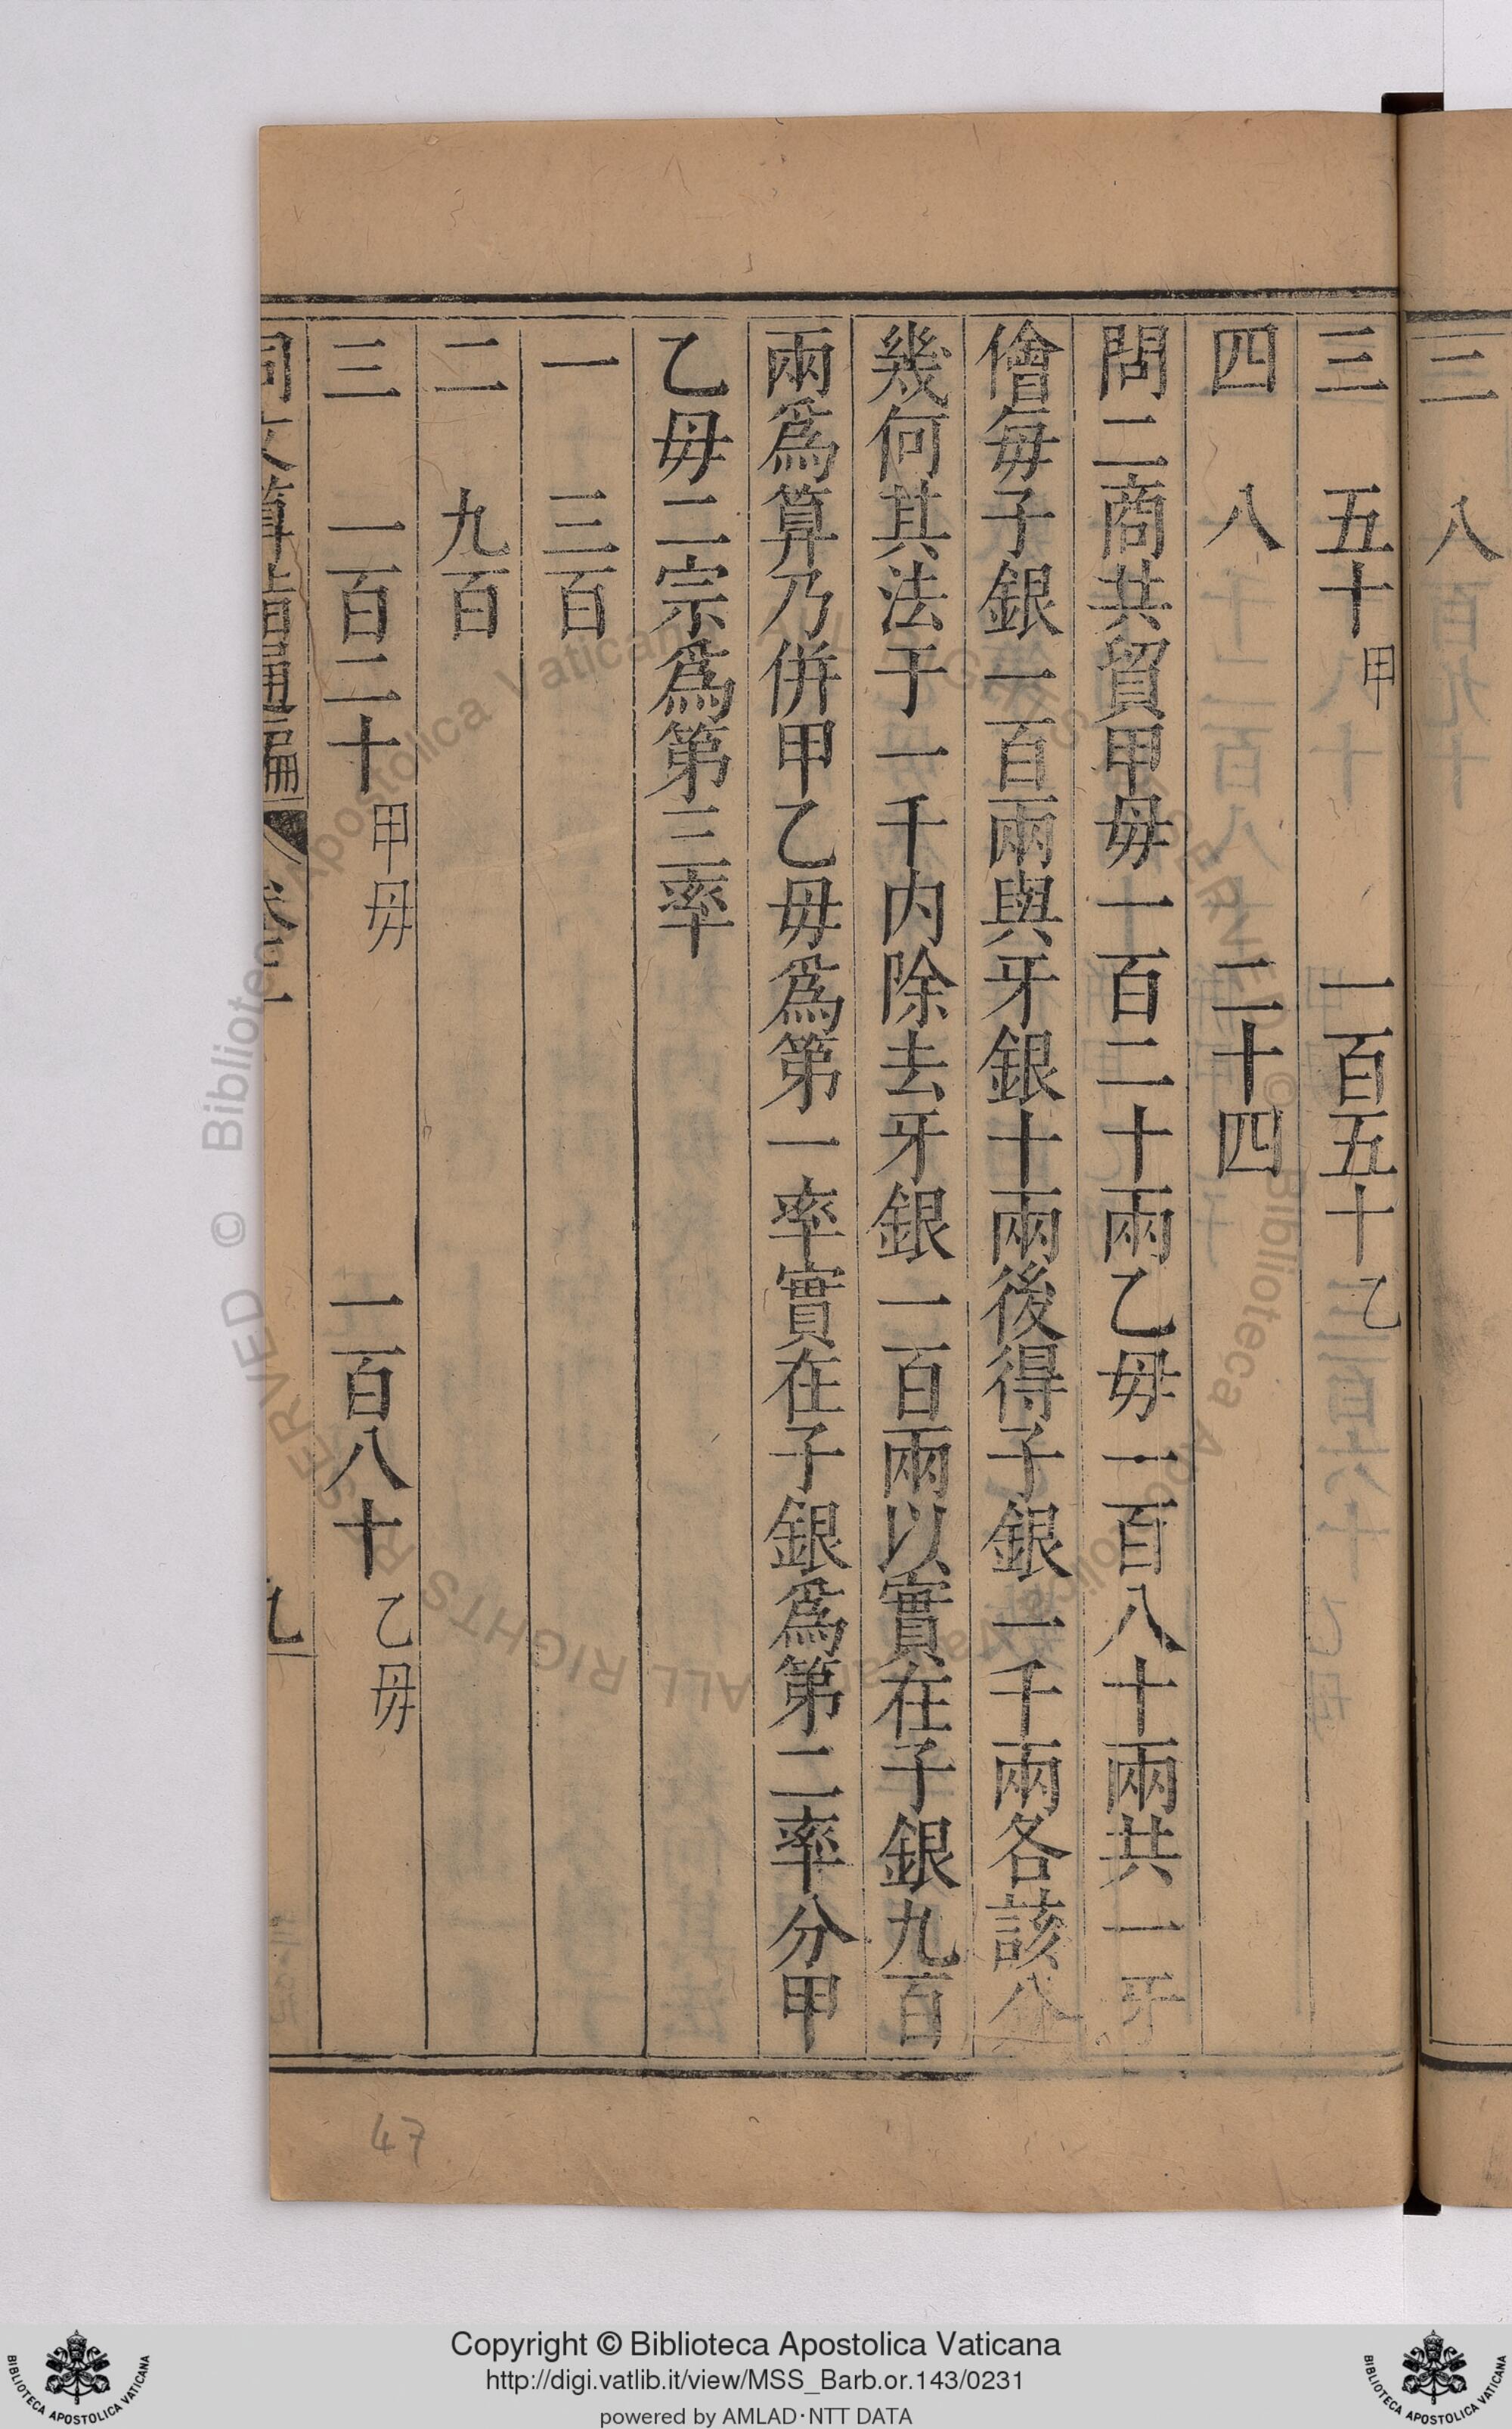 三　八
三　五十甲　一百五十乙
四　八　二十四
問二商共貿甲毋一百二十兩乙毋一百八十兩共一牙
儈每子銀一百兩與牙銀十兩後得子銀一千兩各該
幾何其法于一千內除去牙銀一百兩以實在子銀九百
兩爲算乃併甲乙毋爲第一率實在子銀爲第二率分甲
乙毋二宗爲第三率
一　三百
二　九百
三　一百二十甲毋　一百八十乙毋
同文算指通編　卷二　九
47
© Biblioteca Apostolica Vaticana ALL RIGHTS RESERVED
BIBLIOTECA APOSTOLICA VATICANA
Copyright © Biblioteca Apostolica Vaticana
http://digi.vatlib.it/view/MSS_Barb.or.143/0231
powered by AMLAD·NTT DATA
BIBLIOTECA APOSTOLICA VATICANA